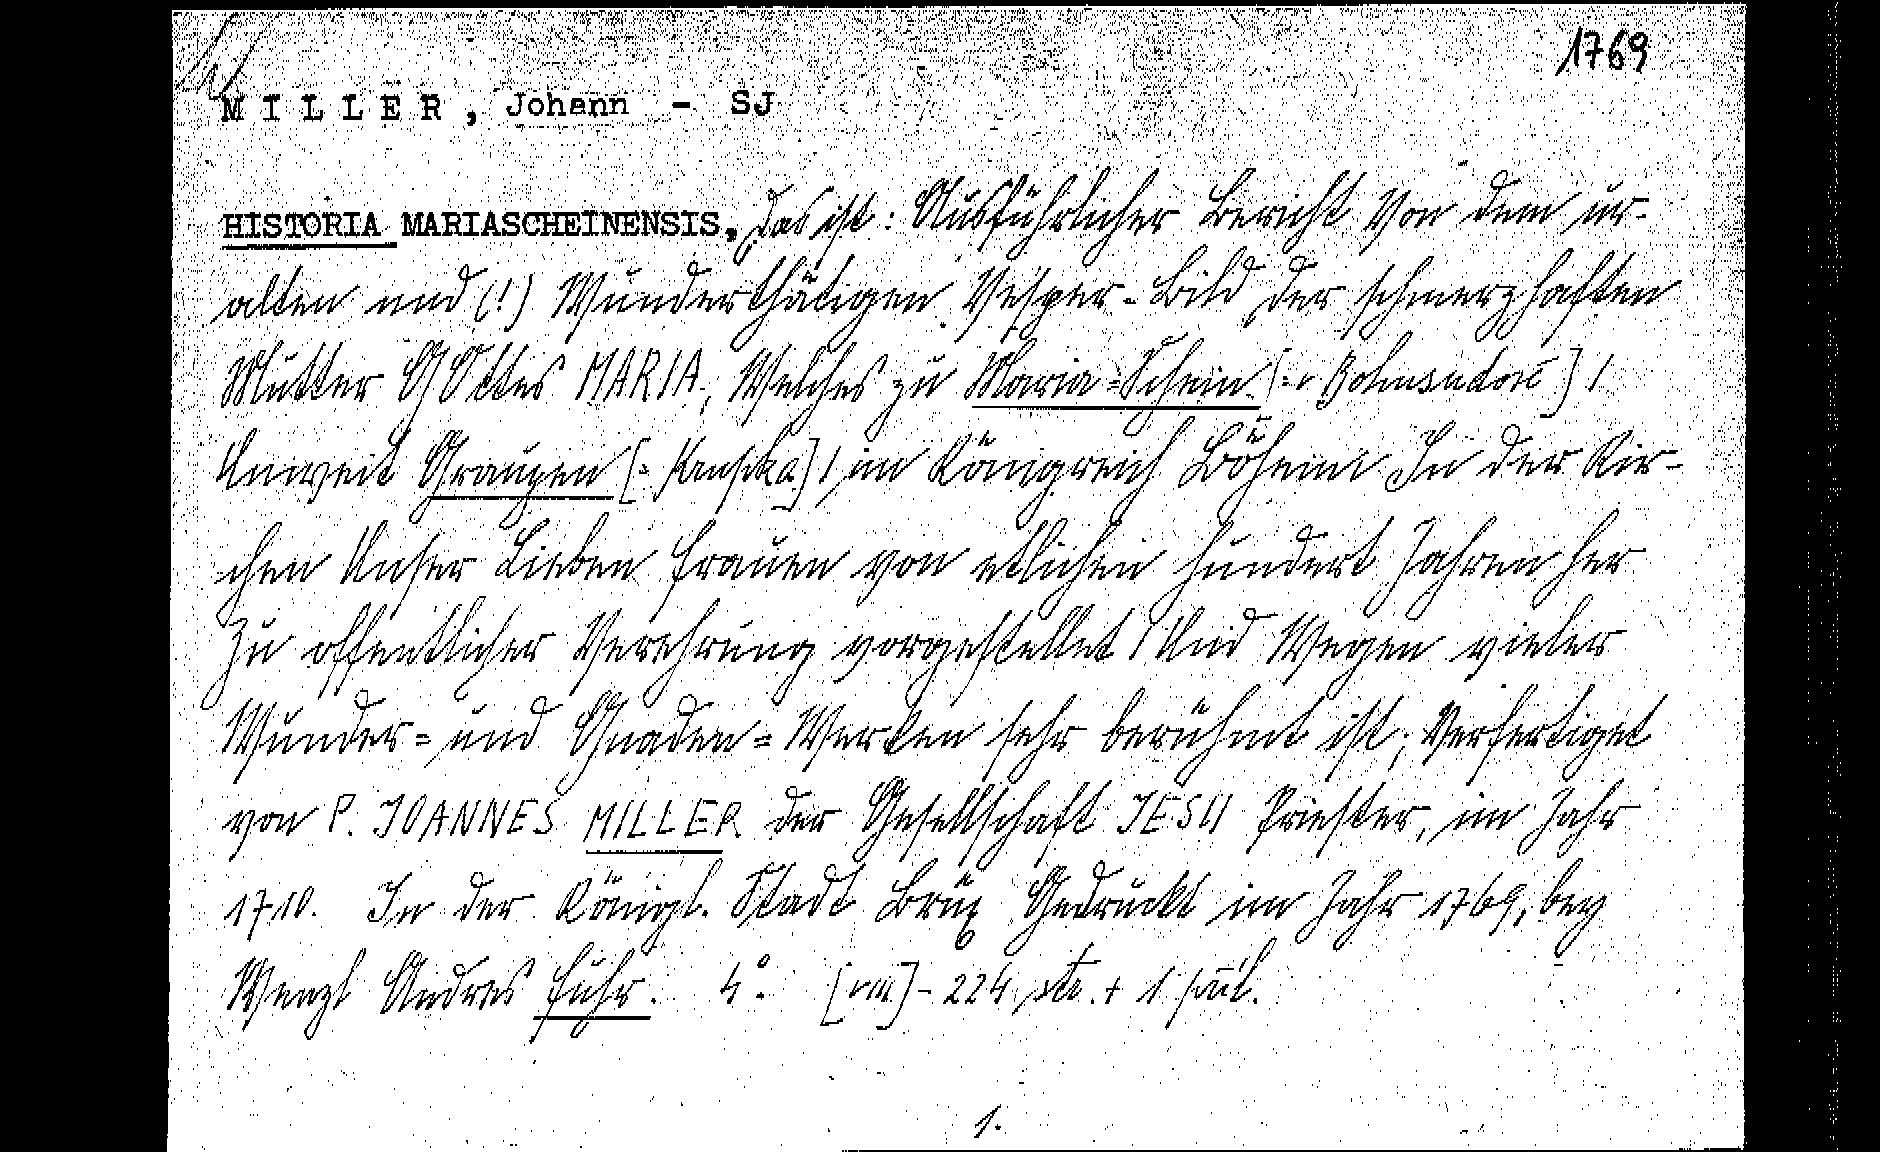 1769
MILLER, Johann - SJ
HISTORIA MARIASCHEINENSIS, Das ist: Ausführlicher Bericht Von dem ur-
alten und (!) Wunderthätigen Vesper-Bild der schmerzhaften
Mutter GOttes MARIA, Welches zu Maria=Schein [= v Bohosudově] /
Unweit Graupen [= Krupka] / im Königreich Böheim In der Kir-
chen Unser Lieben Frauen von etlichen hundert Jahren her
Zu offentlicher Verehrung vorgestellet / Und Wegen vieler
Wunder= und Gnaden=Werken sehr berühmt ist; Verfertiget
von P. JOANNES MILLER der Gesellschaft JESU Priester, im Jahr
1710. In der Königl. Stadt Brüx Gedruckt im Jahr 1769, bey
Wenzl Andres Fuhr. 4°. [VIII] - 224 str. + 1 příl.
1.